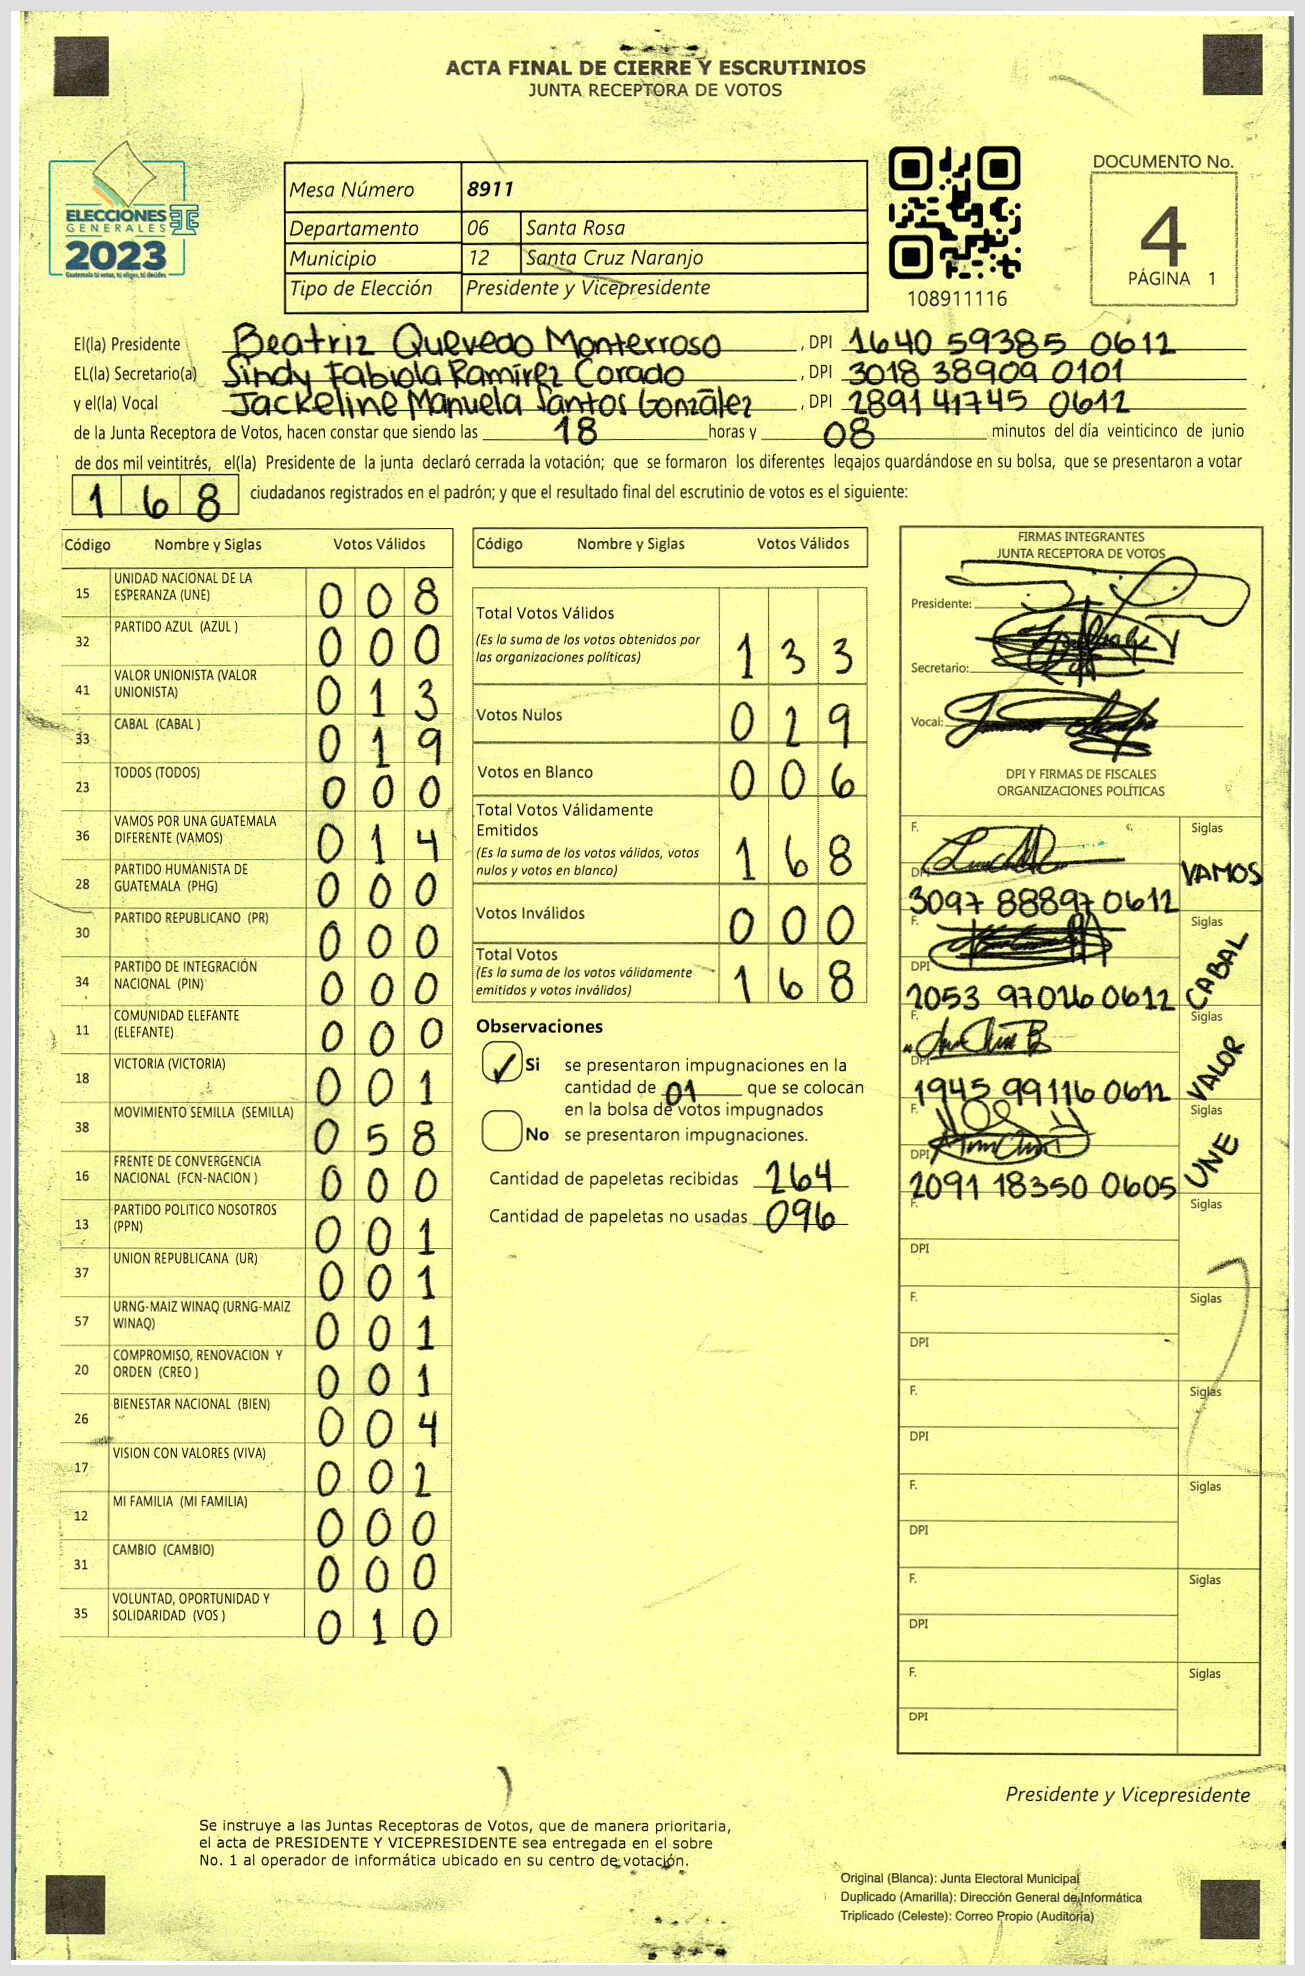 ACTA FINAL DE CIERRE Y ESCRUTINIOS
JUNTA RECEPTORA DE VOTOS
ELECCIONES
GENERALES
2023
Guatemala tú votas, tú eliges, tú decides
Mesa Número 8911
Departamento 06 Santa Rosa
Municipio 12 Santa Cruz Naranjo
Tipo de Elección Presidente y Vicepresidente
108911116
DOCUMENTO No.
4
PÁGINA 1
El(la) Presidente Beatriz Quevedo Monterroso , DPI 1640 59385 0612
EL(la) Secretario(a) Sindy Fabiola Ramírez Corado , DPI 3018 38909 0101
y el(la) Vocal Jackeline Manuela Santos González , DPI 2891 41745 0612
de la Junta Receptora de Votos, hacen constar que siendo las 18 horas y 08 minutos del día veinticinco de junio
de dos mil veintitrés, el(la) Presidente de la junta declaró cerrada la votación; que se formaron los diferentes legajos guardándose en su bolsa, que se presentaron a votar
168 ciudadanos registrados en el padrón; y que el resultado final del escrutinio de votos es el siguiente:
Código Nombre y Siglas Votos Válidos
15 UNIDAD NACIONAL DE LA ESPERANZA (UNE) 008
32 PARTIDO AZUL (AZUL ) 000
41 VALOR UNIONISTA (VALOR UNIONISTA) 013
33 CABAL (CABAL ) 019
23 TODOS (TODOS) 000
36 VAMOS POR UNA GUATEMALA DIFERENTE (VAMOS) 014
28 PARTIDO HUMANISTA DE GUATEMALA (PHG) 000
30 PARTIDO REPUBLICANO (PR) 000
34 PARTIDO DE INTEGRACIÓN NACIONAL (PIN) 000
11 COMUNIDAD ELEFANTE (ELEFANTE) 000
18 VICTORIA (VICTORIA) 001
38 MOVIMIENTO SEMILLA (SEMILLA) 058
16 FRENTE DE CONVERGENCIA NACIONAL (FCN-NACION ) 000
13 PARTIDO POLITICO NOSOTROS (PPN) 001
37 UNION REPUBLICANA (UR) 001
57 URNG-MAIZ WINAQ (URNG-MAIZ WINAQ) 001
20 COMPROMISO, RENOVACION Y ORDEN (CREO ) 001
26 BIENESTAR NACIONAL (BIEN) 004
17 VISION CON VALORES (VIVA) 002
12 MI FAMILIA (MI FAMILIA) 000
31 CAMBIO (CAMBIO) 000
35 VOLUNTAD, OPORTUNIDAD Y SOLIDARIDAD (VOS ) 010
Código Nombre y Siglas Votos Válidos
Total Votos Válidos 133
(Es la suma de los votos obtenidos por
las organizaciones políticas)
Votos Nulos 029
Votos en Blanco 006
Total Votos Válidamente
Emitidos 168
(Es la suma de los votos válidos, votos
nulos y votos en blanco)
Votos Inválidos 000
Total Votos 168
(Es la suma de los votos válidamente
emitidos y votos inválidos)
Observaciones
Si se presentaron impugnaciones en la
cantidad de 01 que se colocan
en la bolsa de votos impugnados
No se presentaron impugnaciones.
Cantidad de papeletas recibidas 264
Cantidad de papeletas no usadas 096
FIRMAS INTEGRANTES
JUNTA RECEPTORA DE VOTOS
Presidente:
Secretario:
Vocal:
DPI Y FIRMAS DE FISCALES
ORGANIZACIONES POLÍTICAS
F. Siglas
DPI 3097 88897 0612 VAMOS
F. Siglas
DPI 2053 97026 0612 CABAL
F. Siglas
DPI 1945 99116 0612 VALOR
F. Siglas
DPI 2091 18350 0605 UNE
F. Siglas
DPI
F. Siglas
DPI
F. Siglas
DPI
F. Siglas
DPI
F. Siglas
DPI
F. Siglas
DPI
Presidente y Vicepresidente
Se instruye a las Juntas Receptoras de Votos, que de manera prioritaria,
el acta de PRESIDENTE Y VICEPRESIDENTE sea entregada en el sobre
No. 1 al operador de informática ubicado en su centro de votación.
Original (Blanca): Junta Electoral Municipal
Duplicado (Amarilla): Dirección General de Informática
Triplicado (Celeste): Correo Propio (Auditoría)